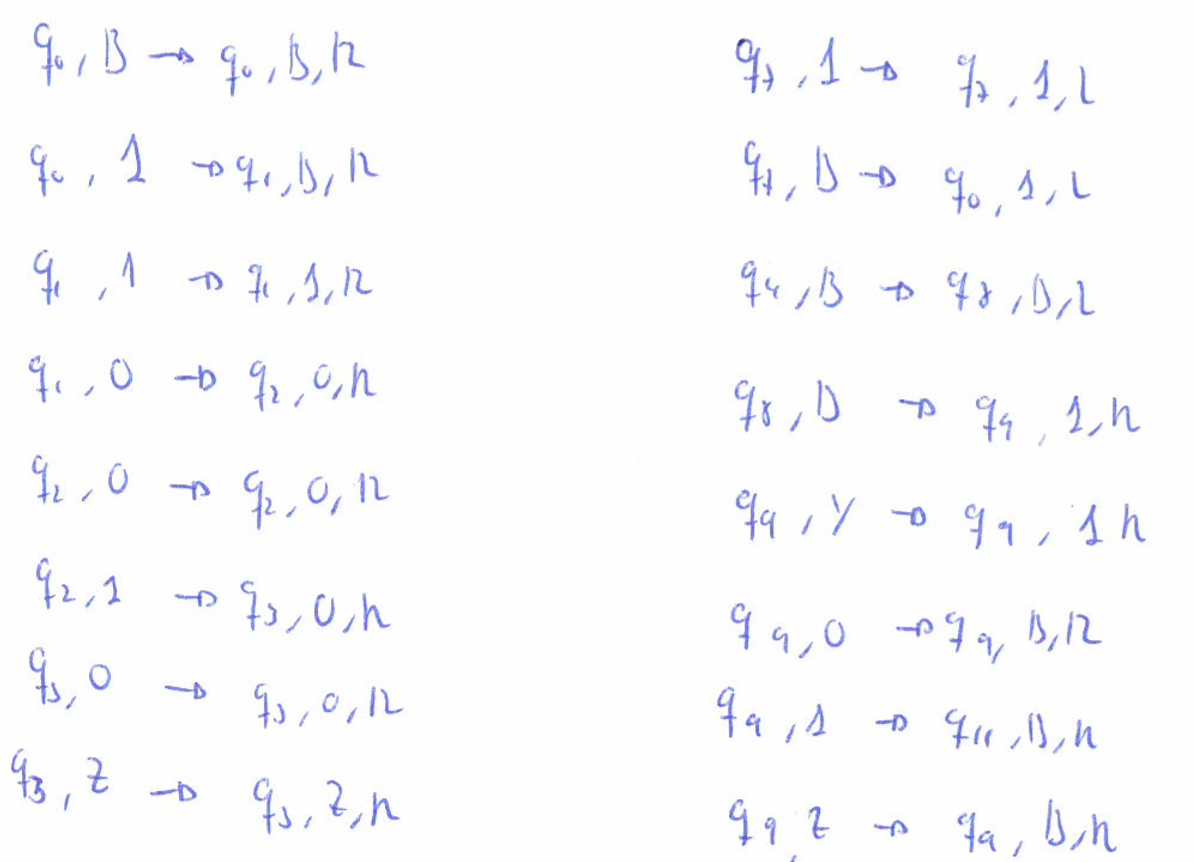 q₀, B → q₀, B, R
q₀, 1 → q₁, B, R
q₁, 1 → q₁, 1, R
q₁, 0 → q₂, 0, R
q₂, 0 → q₂, 0, R
q₂, 1 → q₃, 0, R
q₃, 0 → q₃, 0, R
q₃, Z → q₃, Z, R
q₇, 1 → q₇, 1, L
q₇, B → q₀, 1, L
q₄, B → q₈, B, L
q₈, B → q₉, 1, R
q₉, Y → q₉, 1 R
q₉, 0 → q₉, B, R
q₉, 1 → q₁₁, B, R
q₉, Z → q₉, B, R